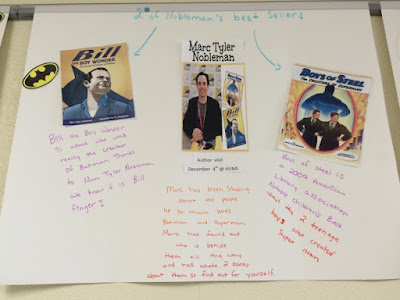 2 of Nobleman's best Sellers
Bill
THE BOY WONDER
Bill the Boy Wonder
is about who was
really the creator
of Batman. Thanks
to Marc Tyler Nobleman
we know it is Bill
Finger!
Marc Tyler
Nobleman
Author visit
December 4th @ HVMS
Marc has been studing
about the people
he so much loves
Batman and Superman
Marc has found out
who is behide
them all this way
and has wrote 2 books
about them so find out for yourself.
BOYS OF STEEL
THE CREATORS OF SUPERMAN
Boys of steel is
a 2009 American
Library association
Notable Children's Book
about the 2 teenage
boys who created
Super man